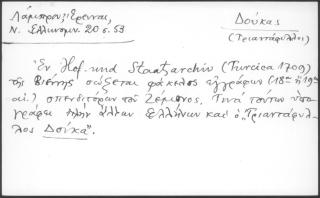 Λάμπρου: Έρευναι,
Ν. Ελληνομν. 20 σ. 53
Δούκας
(Τριαντάφυλλος)
Ἐν Hof- und Staatsarchiv (Turcica 1709)
τῆς Βιέννης σώζεται φάκελος ἐγγράφων (18ου ἢ 19ου
αἰ.) σπενδιτόρων τοῦ Ζέμονος. Τινα τούτων ὑπο
γράφει πλὴν ἄλλων Ἑλλήνων καὶ ὁ "Τριαντάφυλ-
λος Δούκα".